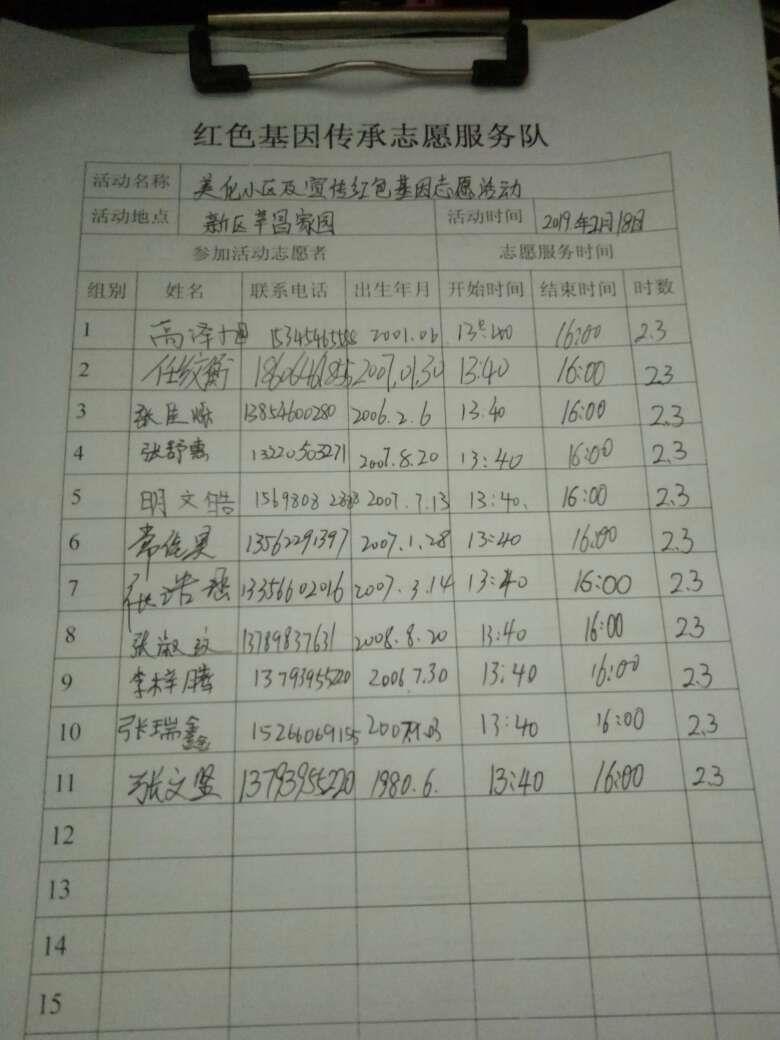 红色基因传承志愿服务队
活动名称 美化小区及宣传红色基因志愿活动
活动地点 新区莘昌家园 活动时间 2019.年2月18日
参加活动志愿者 志愿服务时间
组别 姓名 联系电话 出生年月 开始时间 结束时间 时数
1 高泽 2001.06 16:00 2.3
2 任纹衡 2007.01.30 13:40 16:00 2.3
3 张 13854600280 2006.2.6 13.40 16:00 2.3
4 张舒惠 13220503271 2007.8.20 13:40 16:00 2.3
5 明文皓 2007.7.13 13:40. 16:00 2.3
6 常俊昊 13562291397 2007.1.28 13:40 16:00 2.3
7 张浩 13356602016 2007.3.14 13:40 16:00 2.3
8 张淑 13789837631 2008.8.20 13:40 16:00 2.3
9 李梓腾 13793955220 2006.7.30 13:40 16:00 2.3
10 张瑞鑫 15266069155 13:40 16:00 2.3
11 张文坚 13793955220 1980.6. 13:40 16:00 2.3
12
13
14
15